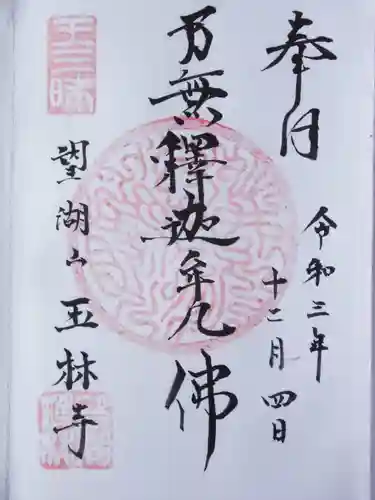 奉拝
令和三年
十二月四日
南無釋迦牟尼佛
望湖山 玉林寺